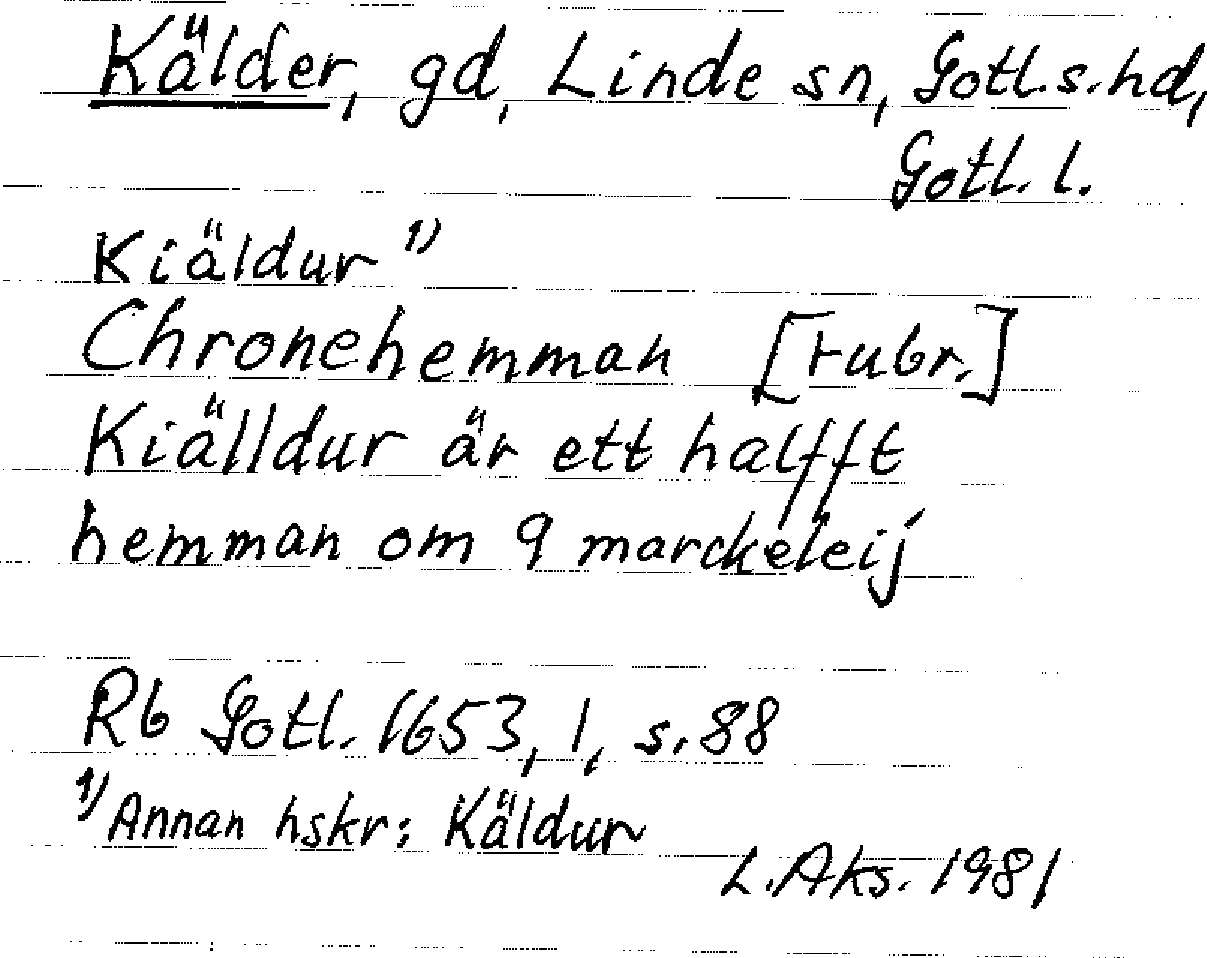 Kälder, gd, Linde sn, Gotl.s.hd,
Gotl. l.
Kiäldur 1)
Chronehemman [rubr.]
Kiälldur är ett halfft
hemman om 9 marckeleij
Rb Gotl. 1653, 1, s. 88
1) Annan hskr: Käldur
L. Aks. 1981